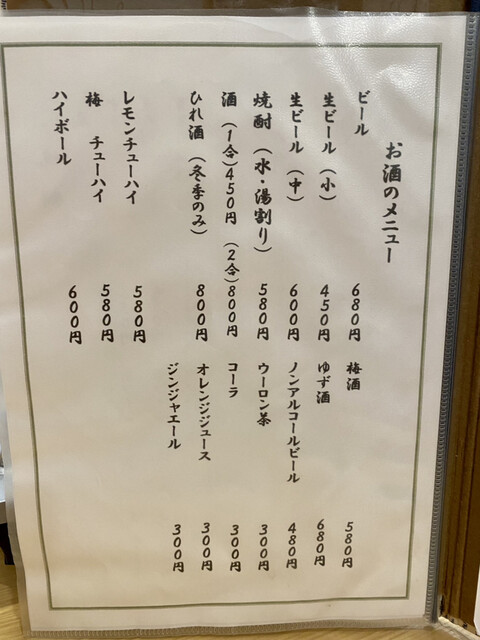 お酒のメニュー
ビール 680円
生ビール（小） 450円
生ビール（中） 600円
焼酎（水・湯割り） 580円
酒（1合）450円（2合）800円
ひれ酒（冬季のみ） 800円
レモンチューハイ 580円
梅 チューハイ 580円
ハイボール 600円
梅酒 580円
ゆず酒 680円
ノンアルコールビール 480円
ウーロン茶 300円
コーラ 300円
オレンジジュース 300円
ジンジャエール 300円